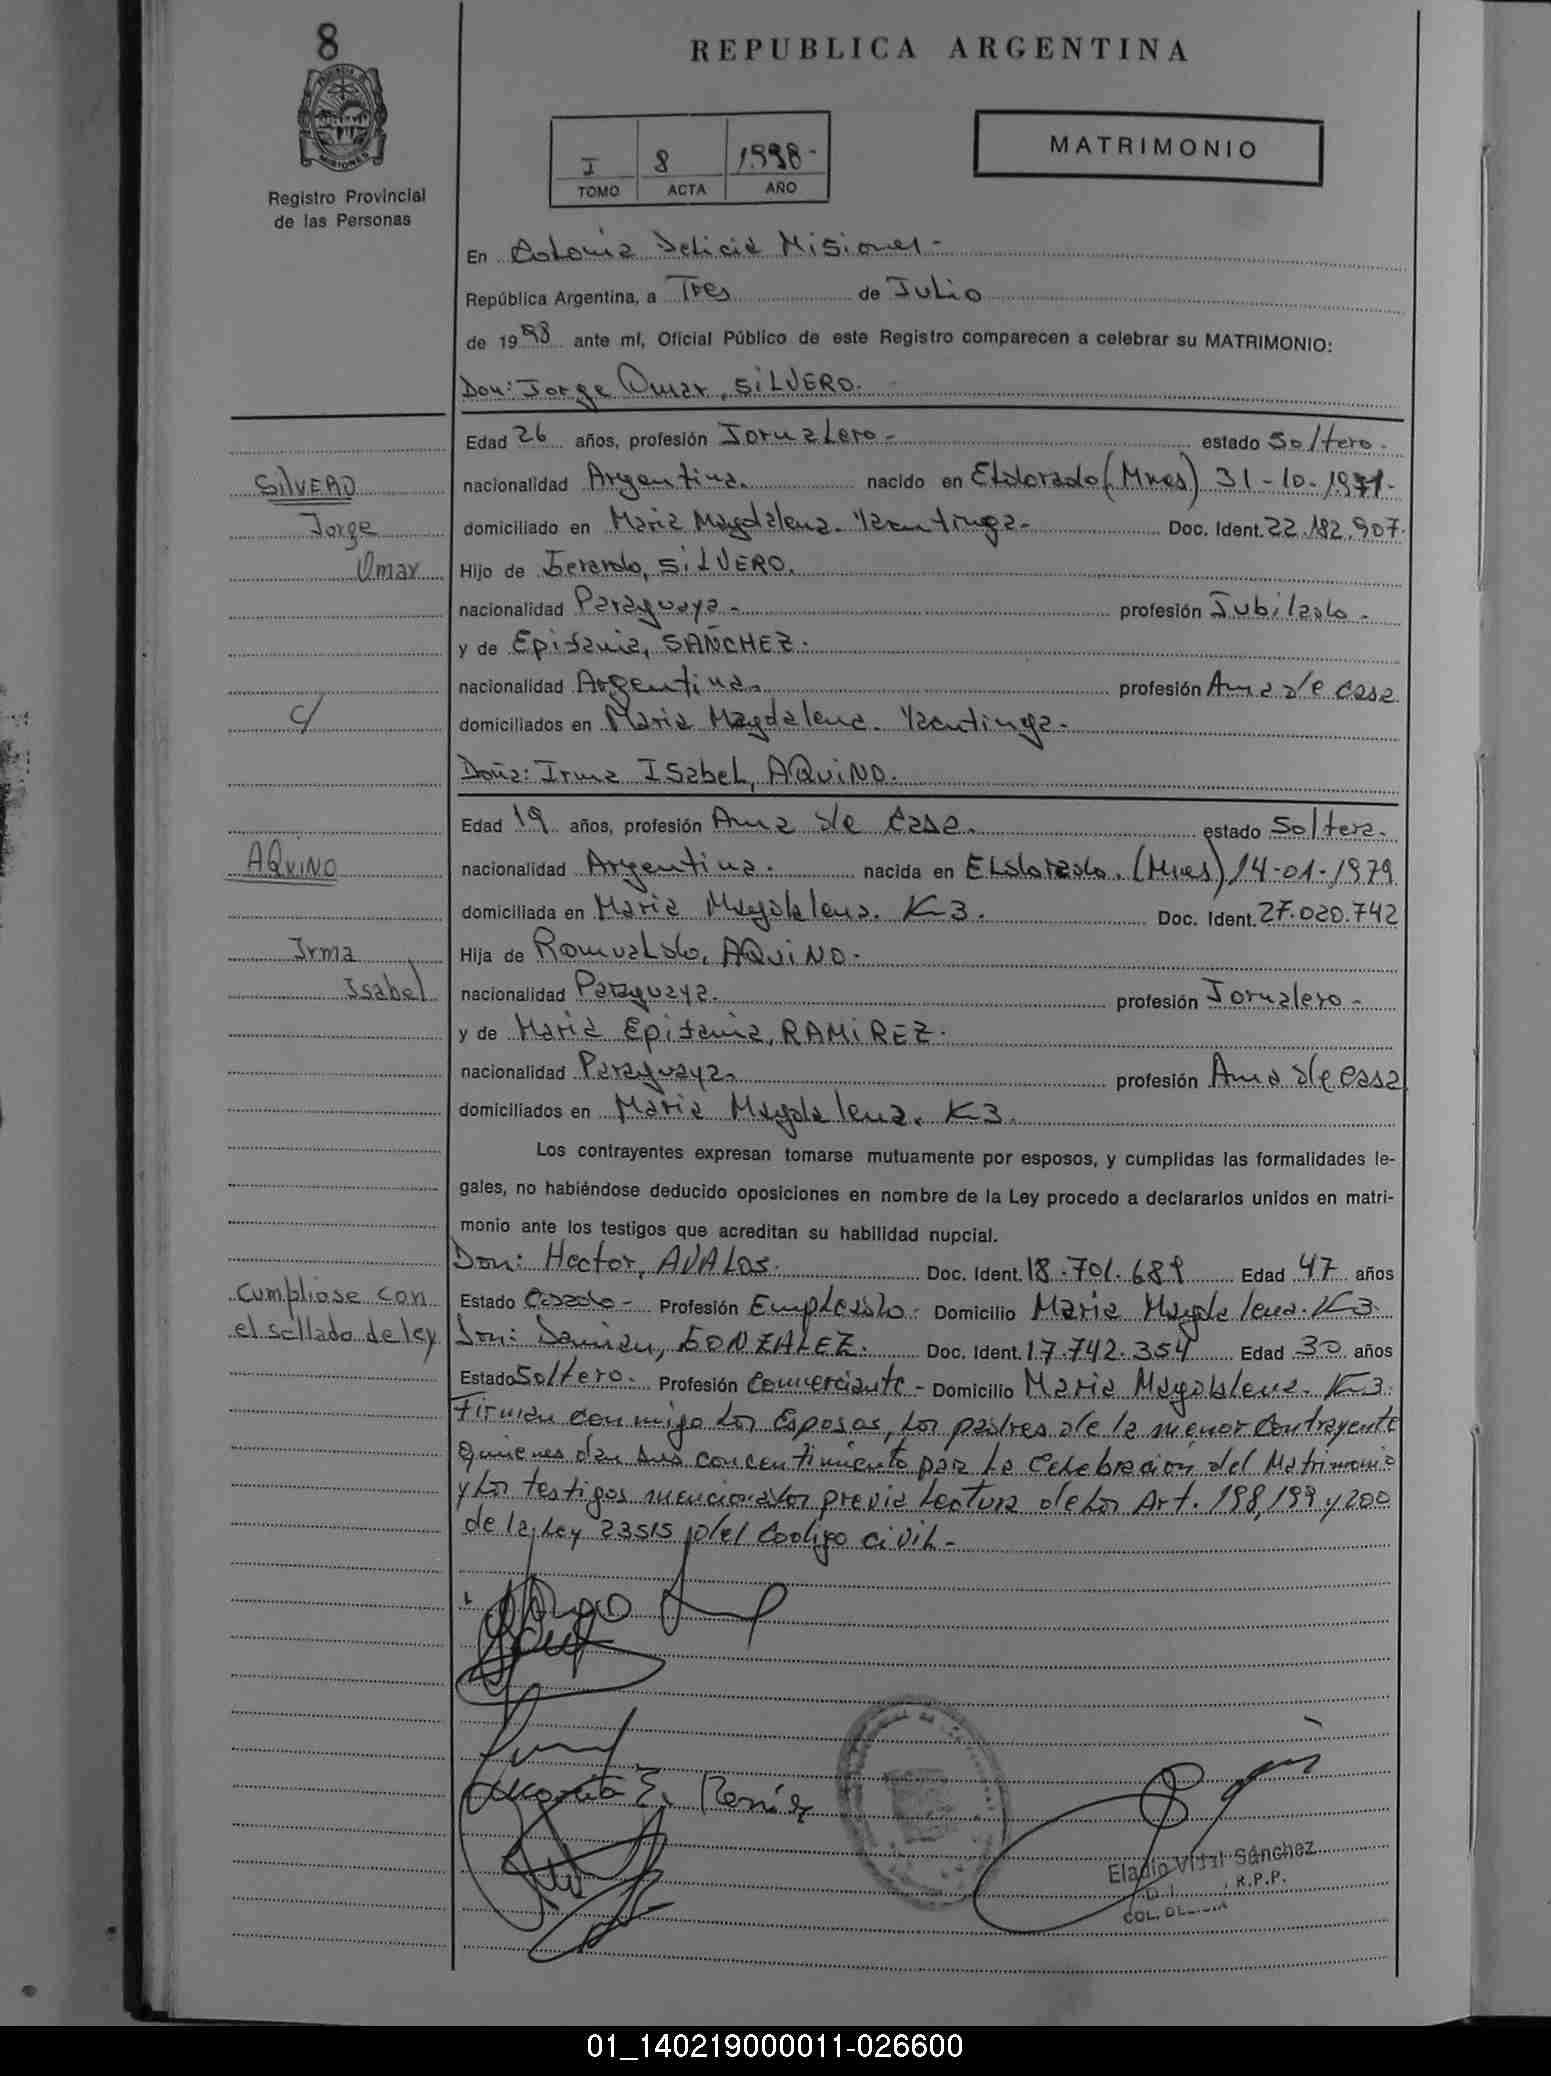 8
REPUBLICA ARGENTINA
PROVINCIA DE
MISIONES
Registro Provincial
de las Personas
I 8 1.998-
TOMO ACTA AÑO
MATRIMONIO
En Colonia Delicia Misiones-
República Argentina, a Tres de Julio
de 1998 ante mí, Oficial Público de este Registro comparecen a celebrar su MATRIMONIO:
Don: Jorge Omar, SiLVERO.
Edad 26 años, profesión Jornalero- estado Soltero.
nacionalidad Argentina. nacido en Eldorado (Mnes) 31-10-1971-
domiciliado en Maria Magdalena. Yacutinga- Doc. Ident. 22.182.907.
Hijo de Gerardo, SiLVERO.
nacionalidad Paraguaya- profesión Jubilado-
y de Epifania, SAÑCHEZ.
nacionalidad Argentina. profesión Ama de casa
domiciliados en Maria Magdalena. Yacutinga-
Doña: Irma ISabeL, AQuiNO.
Edad 19 años, profesión Ama de Casa. estado Soltera.
nacionalidad Argentina. nacida en ELdorado. (Mnes) 14-01-1979
domiciliada en Maria Magdalena. K-3. Doc. Ident. 27.020.742
Hija de RomuaLdo, AQuiNO.
nacionalidad Paraguaya. profesión Jornalero-
y de Maria Epifania, RAMiREZ.
nacionalidad Paraguaya. profesión Ama de casa
domiciliados en Maria Magdalena. K-3.
Los contrayentes expresan tomarse mutuamente por esposos, y cumplidas las formalidades le-
gales, no habiéndose deducido oposiciones en nombre de la Ley procedo a declararlos unidos en matri-
monio ante los testigos que acreditan su habilidad nupcial.
Don: Hector, AVALOS. Doc. Ident. 18.701.689 Edad 47 años
Estado Casado- Profesión Empleado- Domicilio Maria Magdalena. K-3.
Don: Damian, GONZALEZ. Doc. Ident. 17.742.354 Edad 30 años
Estado Soltero. Profesión Comerciante- Domicilio Maria Magdalena. K-3.
Firman conmigo Los Esposos, Los padres de la menor Contrayente
Quienes dan sus concentimiento para La Celebracion del Matrimonio
y Los testigos mencionados previa Lectura de Los Art. 198, 199 y 200
de la Ley 23515 del Codigo civiL-
SilVERO
Jorge
Omar
c/
AQuiNO
Irma
Isabel
Cumpliose con
el sellado de ley
Eladio Vidal Sánchez
R.P.P.
COL. DELICIA
01_140219000011-026600